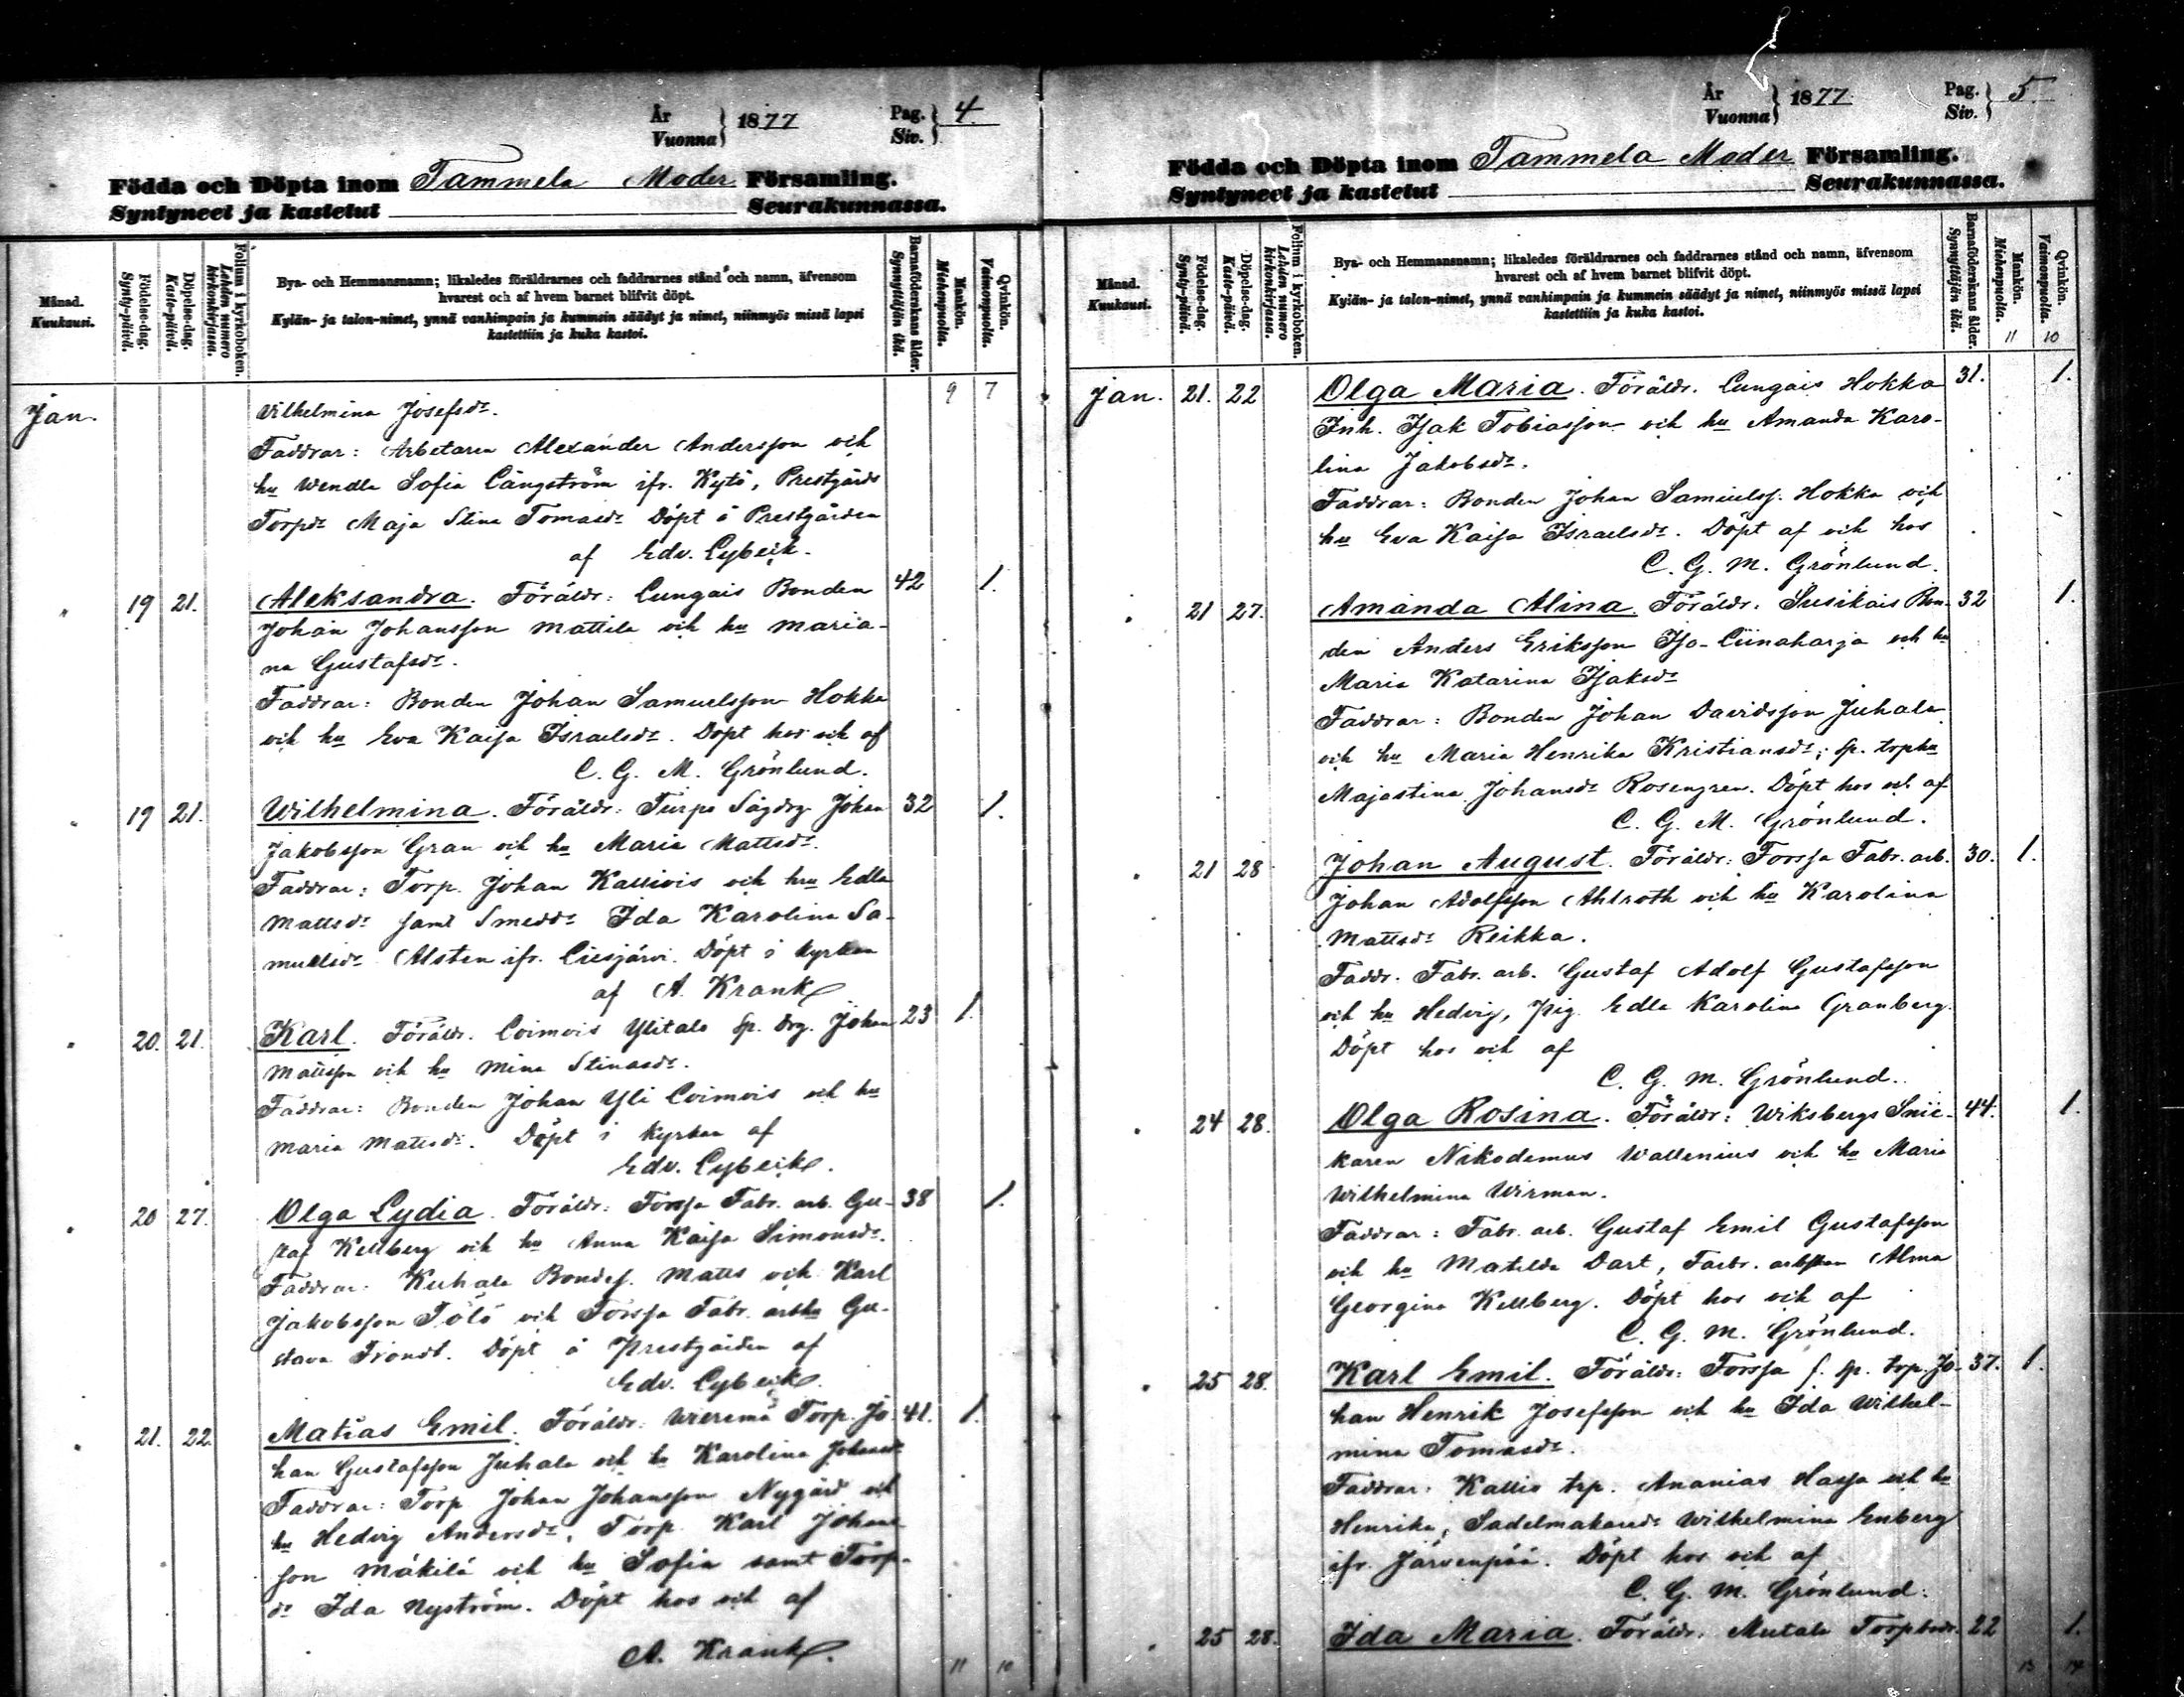 År
Vuonna } 1877 Pag.
Siv. } 4
Födda och Döpta inom Tammela Moder Församling.
Syntyneet ja kastetut Seurakunnassa.
Månad.
Kuukausi.
Födelse-dag.
Synty-päivä.
Döpelse-dag.
Kaste-päivä.
Folium i kyrkoboken.
Lehden numero kirkonkirjassa.
Bya- och Hemmansnamn; likaledes föräldrarnes och faddrarnes stånd och namn, äfvensom
hvarest och af hvem barnet blifvit döpt.
Kylän- ja talon-nimet, ynnä vanhimpain ja kummein säädyt ja nimet, niinmyös missä lapsi
kastettiin ja kuka kastoi.
Barnaföderskans ålder.
Synnyttäjän ikä.
Mankön.
Miehenpuolta.
Qvinkön.
Vaimonpuolta.
9 7
Jan. Vilhelmina Josefsdr.
Faddrar: Arbetaren Alexander Andersson och
hu Wendla Sofia Långström ifr. Kytö, Prestgårds
Torpdr Maja Stina Tomasdr Döpt å Prestgården
af Edv. Lybeck.
" 19 21. Aleksandra. Föräldr: Lungais Bonden 42 1.
Johan Johansson Mattila och hu Maria-
na Gustafsdr.
Faddrar: Bonden Johan Samuelsson Hokka
och hu Eva Kaisa Israelsdr. Döpt hos och af
C. G. M. Grönlund.
" 19 21. Wilhelmina. Föräldr: Turpo Sågdrg Johan 32 1.
Jakobsson Gran och hu Maria Mattsdr.
Faddrar: Torp. Johan Kallivis och hu Edla
Mattsdr samt Smeddr Ida Karolina Sa-
muelsdr Alsten ifr. Liesjärvi. Döpt i kyrkan
af A. Krank
" 20. 21. Karl. Föräldr. Loimois Ylitalo Sp. drg. Johan 23 1.
Mattsson och hu Mina Stinasdr.
Faddrar: Bonden Johan Yli Loimois och hu
Maria Mattsdr. Döpt i kyrkan af
Edv. Lybeck.
" 20 27. Olga Lydia. Föräldr: Forssa Fabr. arb. Gu- 38 1.
staf Kellberg och hu Anna Kaisa Simonsdr.
Faddrar: Kuhala Bondes. Matts och Karl
Jakobsson Tölö och Forssa Fabr. arbhu Gu-
stava Trondt. Döpt å Prestgården af
Edv. Lybeck.
" 21. 22. Matias Emil. Föräldr: Wieremä Torp. Jo- 41. 1.
han Gustafsson Juhala och hu Karolina Johansdr
Faddrar: Torp Johan Johansson Nygård och
hu Hedvig Andersdr, Torp. Karl Johans-
son Mäkilä och hu Sofia samt Torp-
dr Ida Nyström. Döpt hos och af
A. Krank.
11 10
År
Vuonna } 1877 Pag.
Siv. } 5.
Födda och Döpta inom Tammela Moder Församling.
Syntyneet ja kastetut Seurakunnassa.
Månad.
Kuukausi.
Födelse-dag.
Synty-päivä.
Döpelse-dag.
Kaste-päivä.
Folium i kyrkoboken.
Lehden numero kirkonkirjassa.
Bya- och Hemmansnamn; likaledes föräldrarnes och faddrarnes stånd och namn, äfvensom
hvarest och af hvem barnet blifvit döpt.
Kylän- ja talon-nimet, ynnä vanhimpain ja kummein säädyt ja nimet, niinmyös missä lapsi
kastettiin ja kuka kastoi.
Barnaföderskans ålder.
Synnyttäjän ikä.
Mankön.
Miehenpuolta.
Qvinkön.
Vaimonpuolta.
11 10
Jan. 21. 22 Olga Maria. Föräldr. Lungais Hokka 31. 1.
Inh. Isak Tobiasson och hu Amanda Karo-
lina Jakobsdr.
Faddrar: Bonden Johan Samuelss. Hokka och
hu Eva Kaisa Israelsdr. Döpt af och hos
C. G. M. Grönlund.
" 21 27. Amanda Alina. Föräldr: Susikais Bon- 32 1.
den Anders Eriksson Iso-Liinaharja och hu
Maria Katarina Isaksdr
Faddrar: Bonden Johan Davidsson Juhala
och hu Maria Henrika Kristiansdr; sp. torphu
Majastina Johansdr Rosengren. Döpt hos och af
C. G. M. Grönlund.
" 21 28 Johan August. Föräldr: Forssa Fabr. arb. 30. 1.
Johan Adolfsson Ahlroth och hu Karolina
Mattsdr Reikka.
Faddr. Fabr. arb. Gustaf Adolf Gustafsson
och hu Hedvig, pig. Edla Karolina Granberg.
Döpt hos och af
C. G. M. Grönlund.
" 24 28. Olga Rosina. Föräldr: Wiksbergs Snic- 44. 1.
karen Nikodemus Wallenius och hu Maria
Wilhelmina Wirman.
Faddrar: Fabr. arb. Gustaf Emil Gustafsson
och hu Matilda Dart, Fabr. arbskan Alma
Georgina Kellberg. Döpt hos och af
C. G. M. Grönlund.
" 25 28. Karl Emil. Föräldr: Forssa f. sp. torp. Jo- 37. 1.
han Henrik Josefsson och hu Ida Wilhel-
mina Tomasdr.
Faddrar: Kallio trp. Ananias Hassa och hu
Henrika, Sadelmakaredr Wilhelmina Enberg
ifr. Järvenpää. Döpt hos och af
C. G. M. Grönlund.
" 25 28. Ida Maria. Föräldr. Mutala Torpbdr. 22 1.
13 14